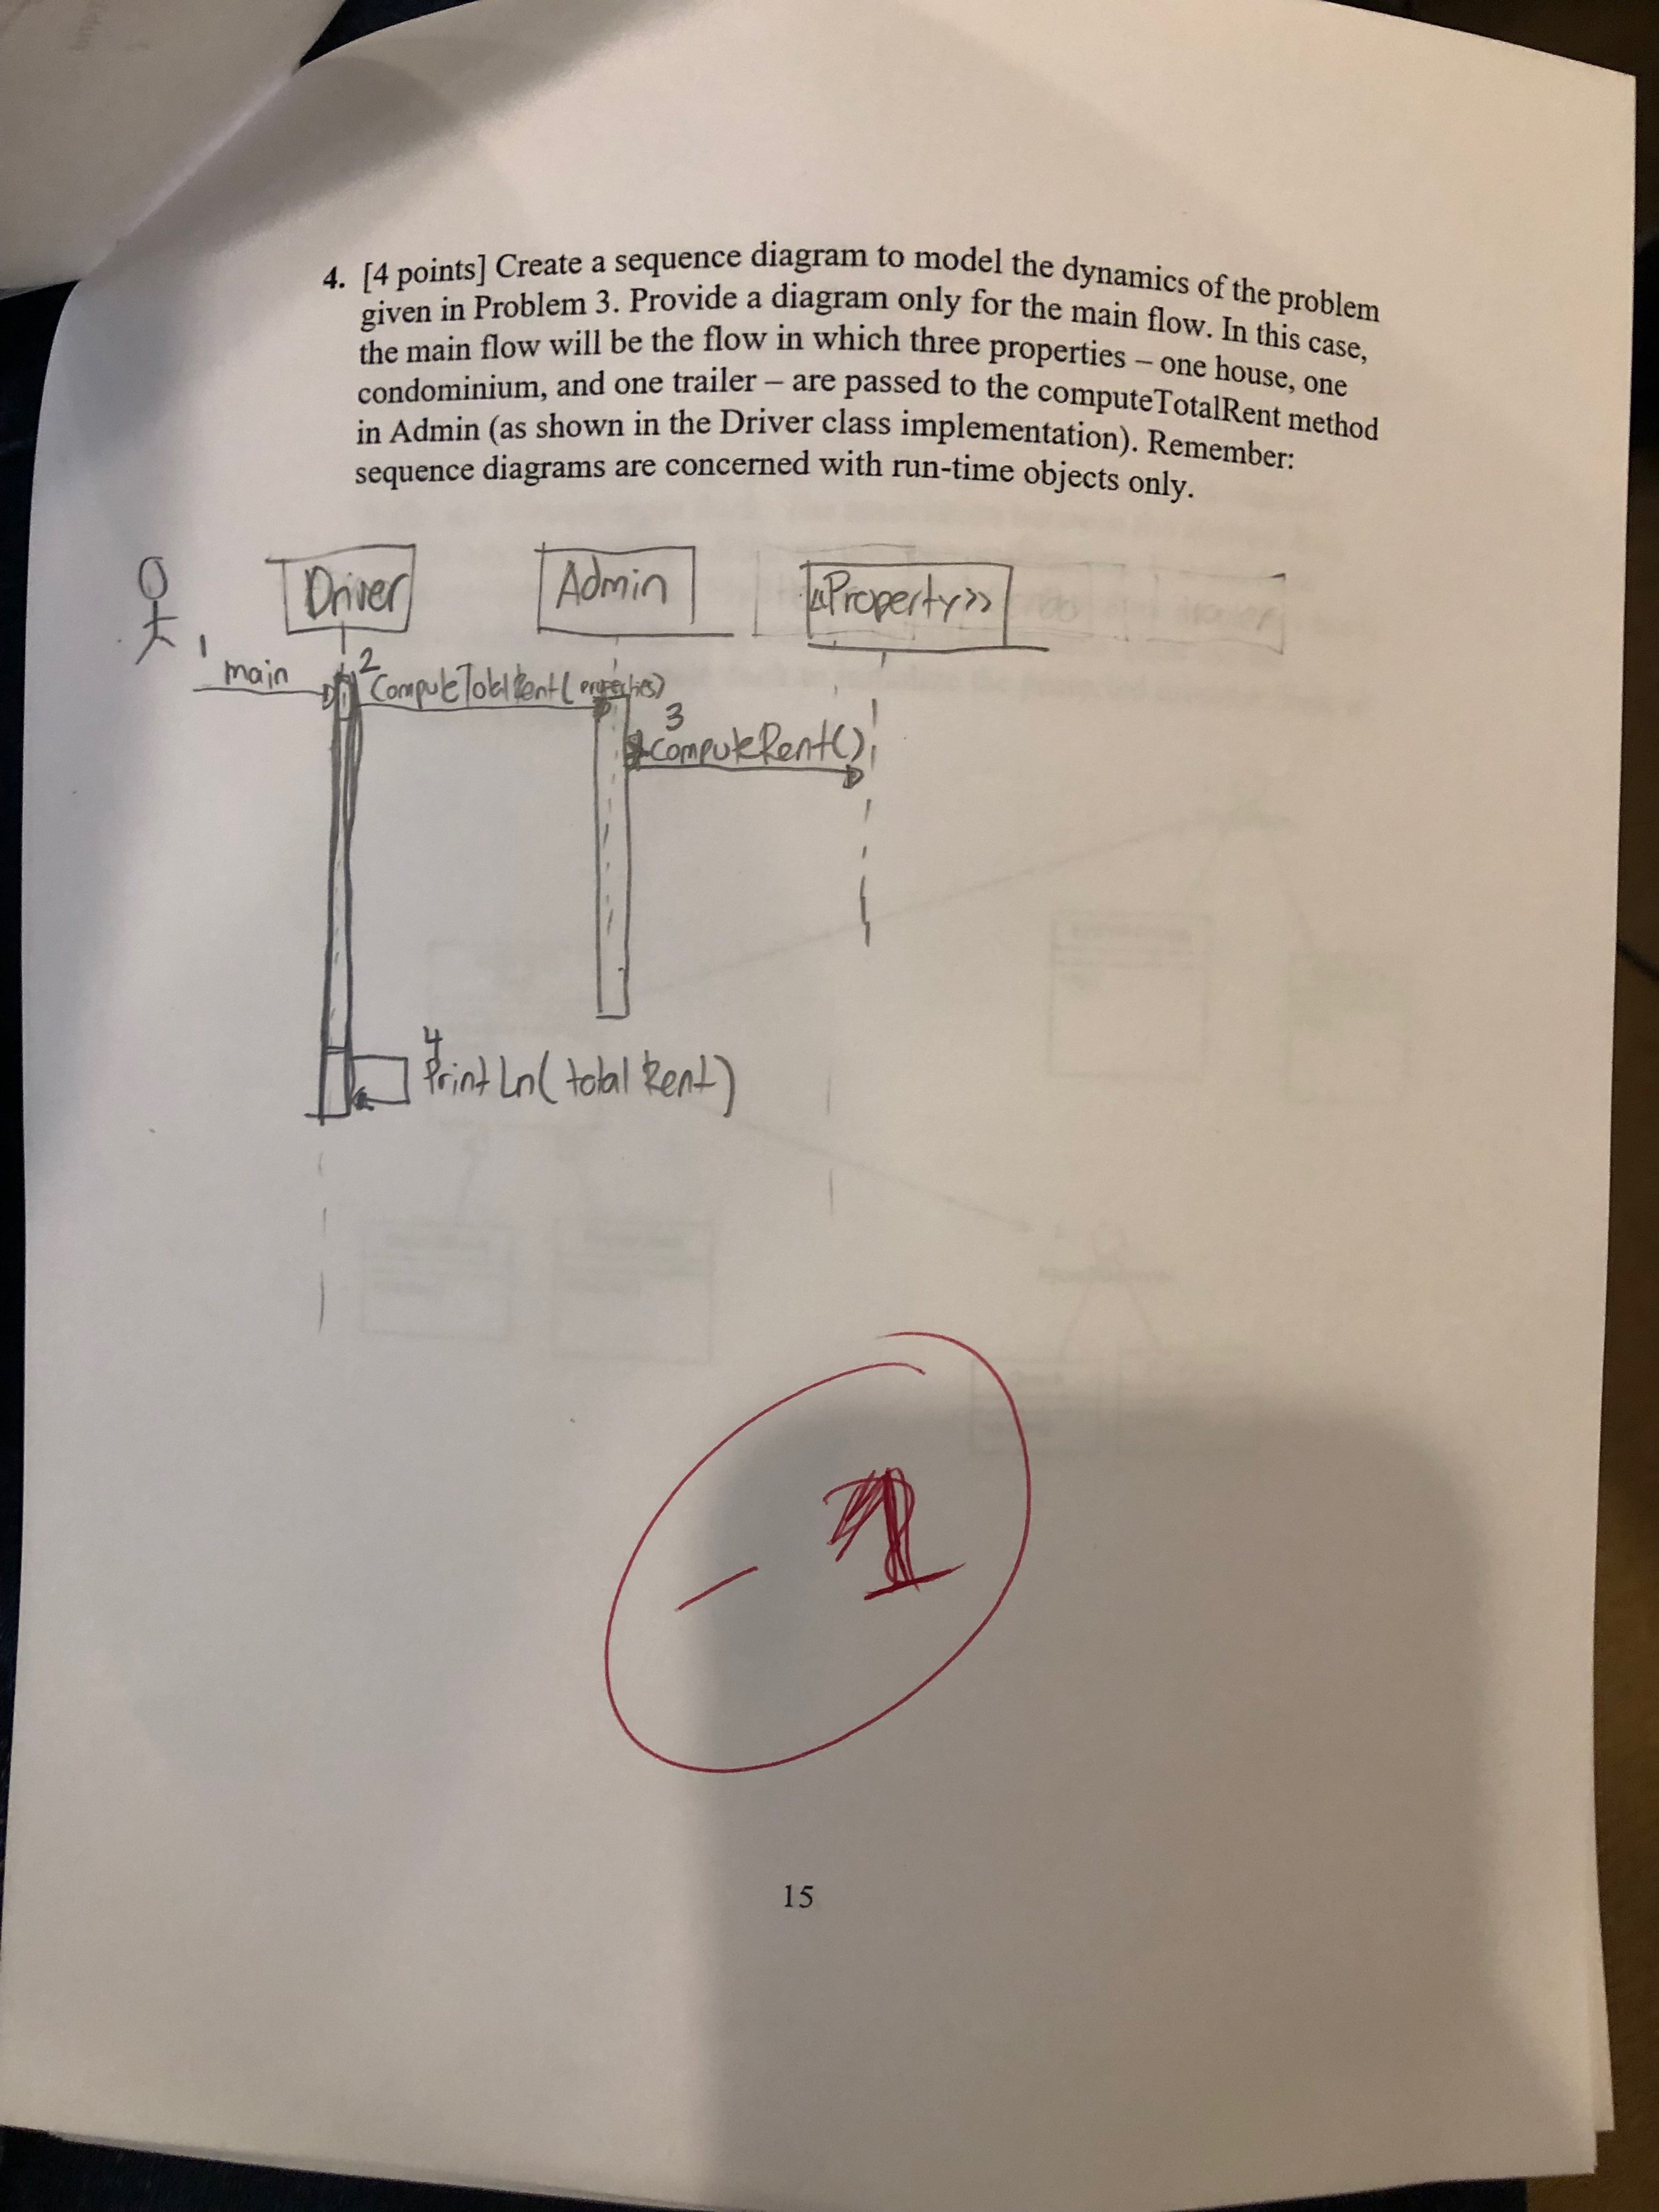 4. [4 points] Create a sequence diagram to model the dynamics of the problem
given in Problem 3. Provide a diagram only for the main flow. In this case,
the main flow will be the flow in which three properties – one house, one
condominium, and one trailer – are passed to the computeTotalRent method
in Admin (as shown in the Driver class implementation). Remember:
sequence diagrams are concerned with run-time objects only.
Driver Admin «Property»
1 main
2 ComputeTotalRent(properties)
3
*computeRent()
4
PrintLn(total Rent)
- 1
15